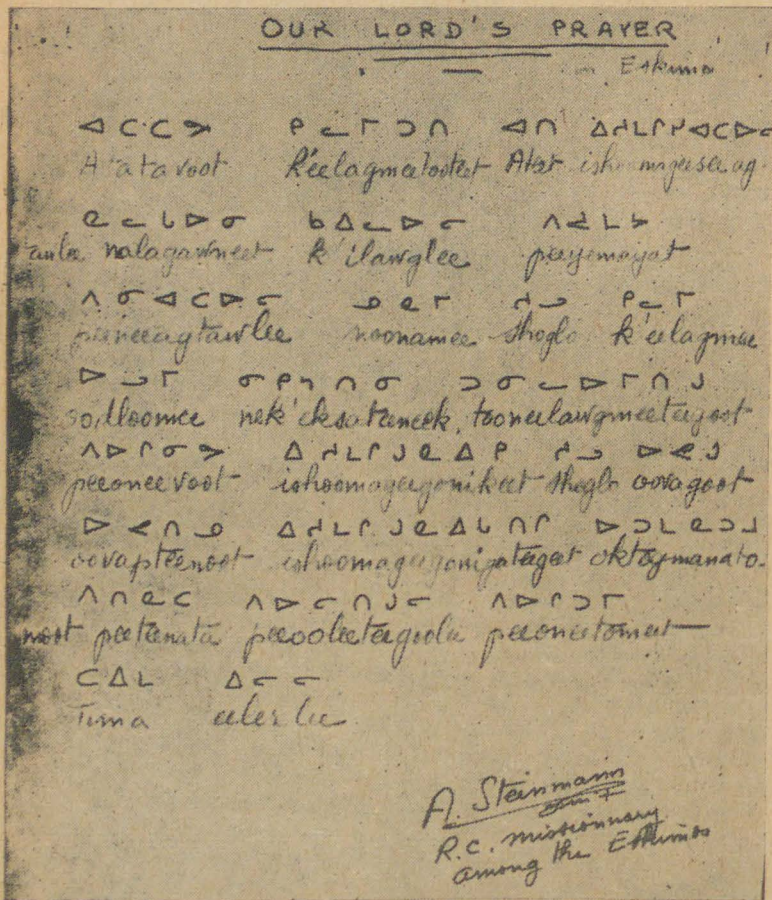 OUR LORD'S PRAYER
in Eskimo
ᐊᑕᑕᕗ ᑭᓚᒥᑐᑎ ᐊᑎ ᐃᓱᒪᒋᓯᐊᑕᐅᓕ
Atatavoot k'eelagmeetooteet Ateet
ᓇᓚᒐᐅᓂ ᑲᐃᓚᐅᓕ ᐱᔪᒪᔭ
nalagawneet k'ilawglee peeyomayat
ᐱᓂᐊᑕᐅᓕ ᓄᓇᒥ ᓱᓗ ᑭᓚᒥ
peeneeagtawlee noonamee shoglo k'eelagmee
ᐅᓗᒥ ᓂᑭᓴᑎᓂ ᑐᓂᓚᐅᒥᑎᒍ
oodloomee nek'eksateeneek, tooneelawgmeeteegoot
ᐱᐅᒋᓂᕗ ᐃᓱᒪᒋᒍᓇᐃᑭ ᓱᓗ ᐅᕙᒍ
peeoneevoot ishoomageegonikeet shoglo oovagoot
ᐅᕙᑎᓄ ᐃᓱᒪᒋᒍᓇᐃᒐᑎᒋ ᐅᑐᒪᓇᑐᓄ
oovapteenoot ishoomageegonigateegeet oktogmanato-
ᐱᑎᓇᑕ ᐱᐅᓕᑎᒍᓕ ᐱᐅᒋᑐᒥ
noot peeteenata peeooleeteegoolee peeoneetomeet
ᑕᐃᒪ ᐃᓕᓕ
Tima eeleelee
A. Steinmann
o.m.i.
R.C. missionnary
among the Eskimos